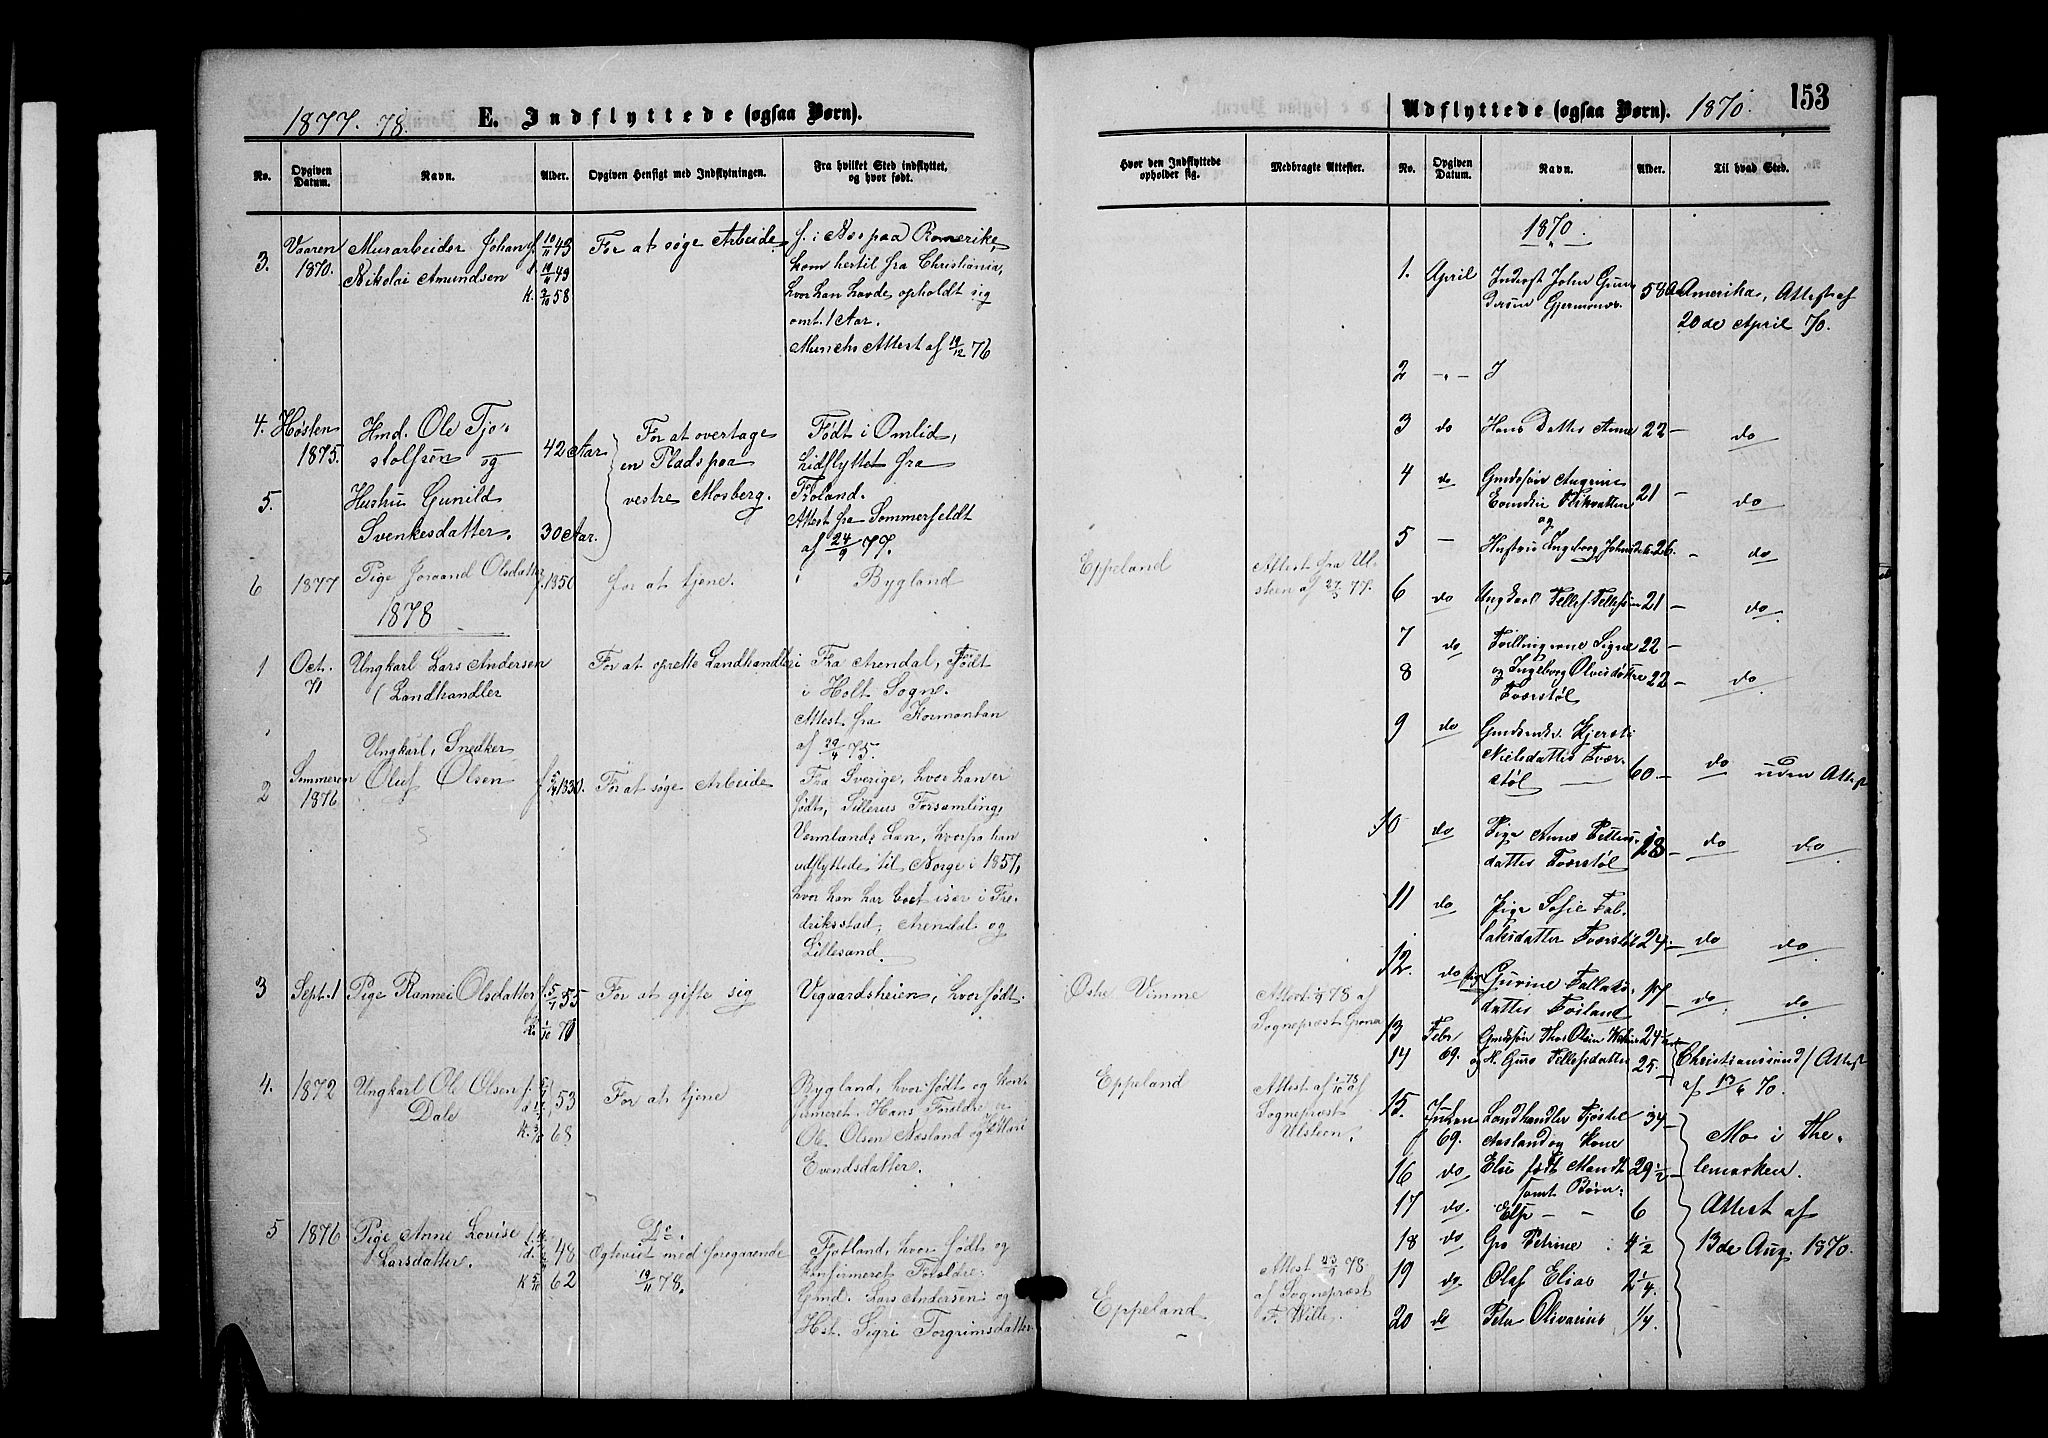 1877. 78.
E. Indflyttede (ogsaa Børn).
No.
Opgiven Datum.
Navn.
Alder.
Opgiven Hensigt med Indflytningen.
Fra hvilket Sted indflyttet, og hvor født.
3.
Vaaren
1870.
Murarbeider Johan
Nikolai Amundsen
f. 10/11 43
K. 2/10 58
For at søge Arbeide
f. i Næs paa Romerike,
kom hertil fra Christiania,
hvor han havde opholdt sig
omt. 1 Aar.
Munchs Attest af 19/12 76
4.
Høsten
1875.
Hmd. Ole Tjo-
stolfsøn og
42 Aar
For at overtage
en Plads paa
vestre Mosberg.
Født i Omlid,
hidflyttet fra
Froland.
Attest fra Sommerfeldt
af 24/9 77.
5.
Hustru Gunild
Svenkesdatter.
30 Aar.
6
1877
Pige Joraand Olsdatter
f. 1850
for at tjene.
Bygland
1878
1
Oct.
71
Ungkarl Lars Andersen
(Landhandler
For at oprette Landhandleri
Fra Arendal, Født
i Holt Sogn.
Attest fra Kormontan
af 29/4 75.
2
Sommeren
1876
Ungkarl, Snedker
Oluf Olsen
For at søge Arbeide
Fra Sverige, hvor han er
født, Silleruds Forsamling,
Vermlands Lan, hvorfra han
udflyttede til Norge i 1857,
hvor han har boet især i Fre-
driksstad, Arendal og
Lillesand.
3
Sept. 1
Pige Rannei Olsdatter
f. 5/7 55
K. 1/10 71
For at gifte sig
Vegaardsheien, hvor født.
4.
1872
Ungkarl Ole Olsen
Dale
53
68
For at tjene
Bygland, hvor født og kon-
firmeret. Hans Forældre er
Ole Olsen Næsland og Mari
Evendsdatter.
5
1876
Pige Anne Lovise
Larsdatter.
48
62
Do.
Ægteviet med foregaaende
19/11 78.
Fjotland, hvor født og
konfirmeret Forældre:
Gmd. Lars Andersen og
Hst. Sigri Torgrimsdatter
Udflyttede (ogsaa Børn).
1870.
153
Hvor den Indflyttede opholder sig.
Medbragte Attester.
No.
Opgiven Datum.
Navn.
Alder.
Til hvad Sted.
Eppeland
Attest fra Ul-
steen af 27/3 77.
Østre Vimme
Attest 1/9 78 af
Sogneprest
Eppeland
Attest af 1/10 78 af
Sogneprest
Ulsteen.
Eppeland
Attest 23/9 78
af Sogneprest
F. Wille.
1870.
1.
April
John
58
Amerika, Attest af
20de April 70.
2
3
do
Hans Datter Anne
22
do
4
do
21
do
5
Hustru Ingeborg
26.
do
6
do
Ungkarl Tellef Tellefsøn
21
do
7
do
Tvillingerne Signe
22
8
og Ingeborg Olvesdøttre
Tverstøl
22
do
9
do
Kjersti
Nielsdatter Tver-
støl
60
do
uden Attest
10
do
Pige Anne
datter Tverstøl
do
do
11
do
Pige Sofie Fal-
laksdatter Tverstøl
24
do
do
12.
do
Gurine Fallaks-
datter
17
do
do
13
Febr
69.
24
Christianssand / Attest
af 13/6 70.
14
og H. Guro Tellefsdatter
25
15.
69.
Landhandler Tjøstel
Aasland og Kone
34
Mo i The-
lemarken.
Attest af
13de Aug. 1870.
16
do
Else født Mandt
29 1/2
samt Børn:
17
do.
6
18
do
Gro Petrine
4 1/2
19
do
Olaf Elias
2 1/4
20
do
Peter Olivarius
1/4.